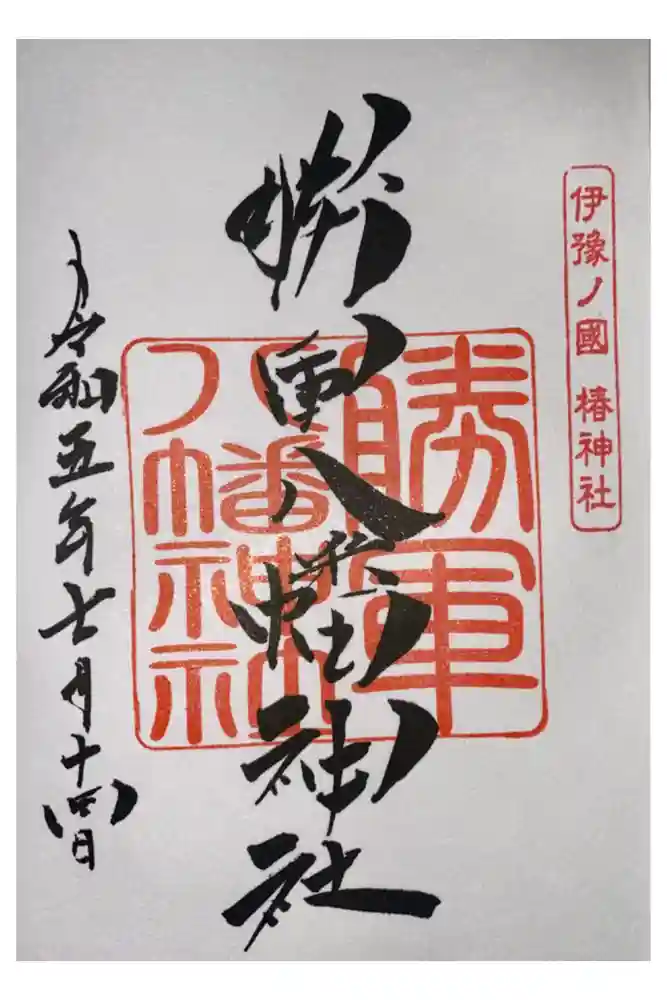 伊豫ノ國 椿神社
勝軍八幡神社
勝軍
八幡神社
令和五年七月十四日